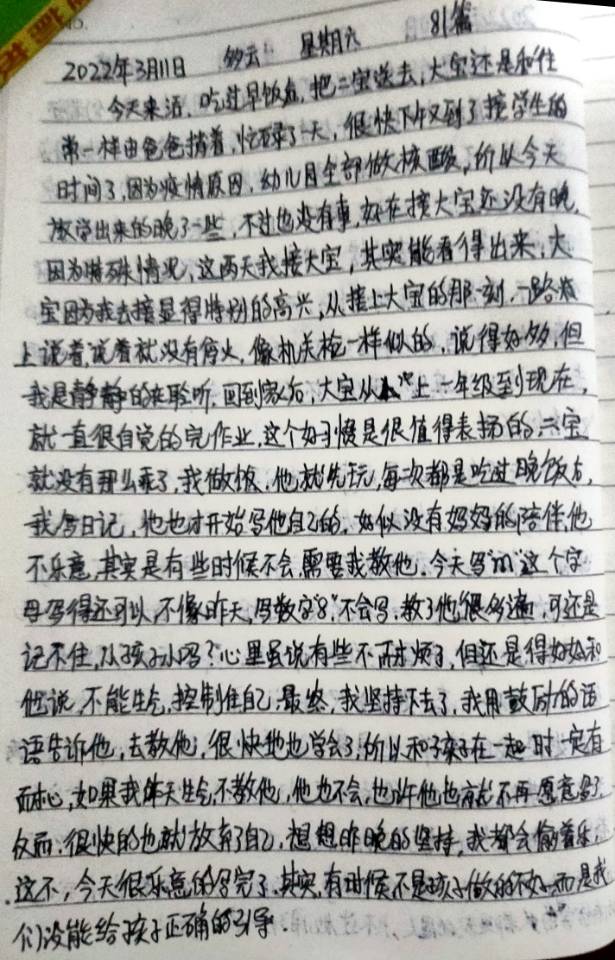 2022年3月11日 多云 星期六 81篇
今天来活，吃过早饭后，把二宝送去，大宝还是和往
常一样由爸爸捎着，忙碌了一天，很快下午又到了接学生的
时间了，因为疫情原因，幼儿园全部做核酸，所以今天
放学出来的晚了一些，不过也没有事，好在接大宝还没有晚，
因为特殊情况，这两天我接大宝，其实能看得出来，大
宝因为我去接显得特别的高兴，从接上大宝的那一刻，一路
上说着，说着就没有停火，像机关枪一样似的，说得好多，但
我是静静的来聆听，回到家后，大宝从上一年级到现在，
就一直很自觉的完作业，这个好习惯是很值得表扬的，二宝
就没有那么乖了，我做饭，他就先玩，每次都是吃过晚饭后，
我写日记，他也才开始写他自己的，好似没有妈妈的陪伴他
不乐意，其实是有些时候不会，需要我教他，今天写"m"这个字
母写得还可以，不像昨天，写数字"8"，不会写，教了他很多遍，可还是
记不住，小孩子小吗？心里虽说有些不耐烦了，但还是得好好和
他说，不能生气，控制住自己，最终，我坚持下去了，我用鼓励的话
语告诉他，去教他，很快地也学会了，所以和孩子在一起时一定有
耐心，如果我昨天生气，不教他，他也不会，也许他也就不再愿意写了，
反而，很快的也就放弃了自己，想想昨晚的坚持，我都会偷着乐，
这不，今天很乐意的写完了，其实，有时候不是孩子做的不好，而是我
们没能给孩子正确的引导.